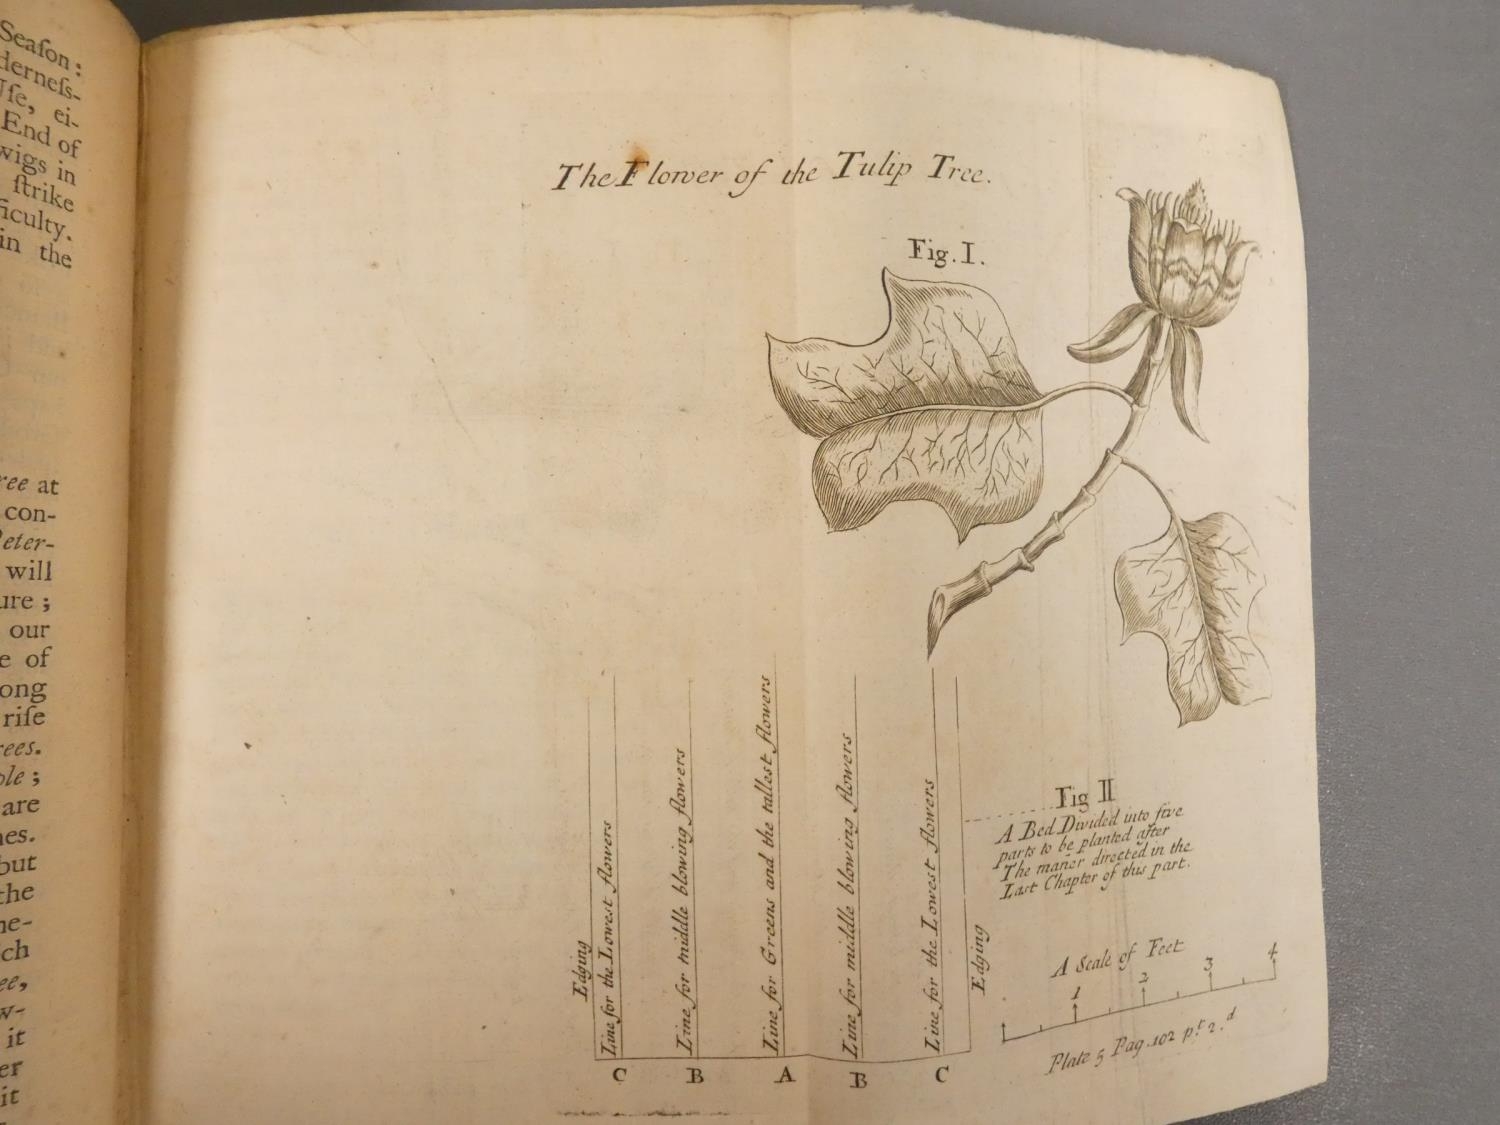 Season:
derneſs-
Uſe, ei-
End of
wigs in
ſtrike
ficulty.
in the
ree at
con-
Peter-
will
ure;
our
e of
ong
riſe
rees.
ole;
are
nes.
but
the
ne-
ch
ee,
w-
it
er
it
The Flower of the Tulip Tree.
Fig. I.
Fig II
A Bed Divided into five
parts to be planted after
The mañer directed in the
Last Chapter of this part.
Edging
Line for the Lowest flowers
Line for middle blowing flowers
Line for Greens and the tallest flowers
Line for middle blowing flowers
Line for the Lowest flowers
Edging
C B A B C
A Scale of Feet
1 2 3 4
Plate 5 Pag. 102 p.t 2.d